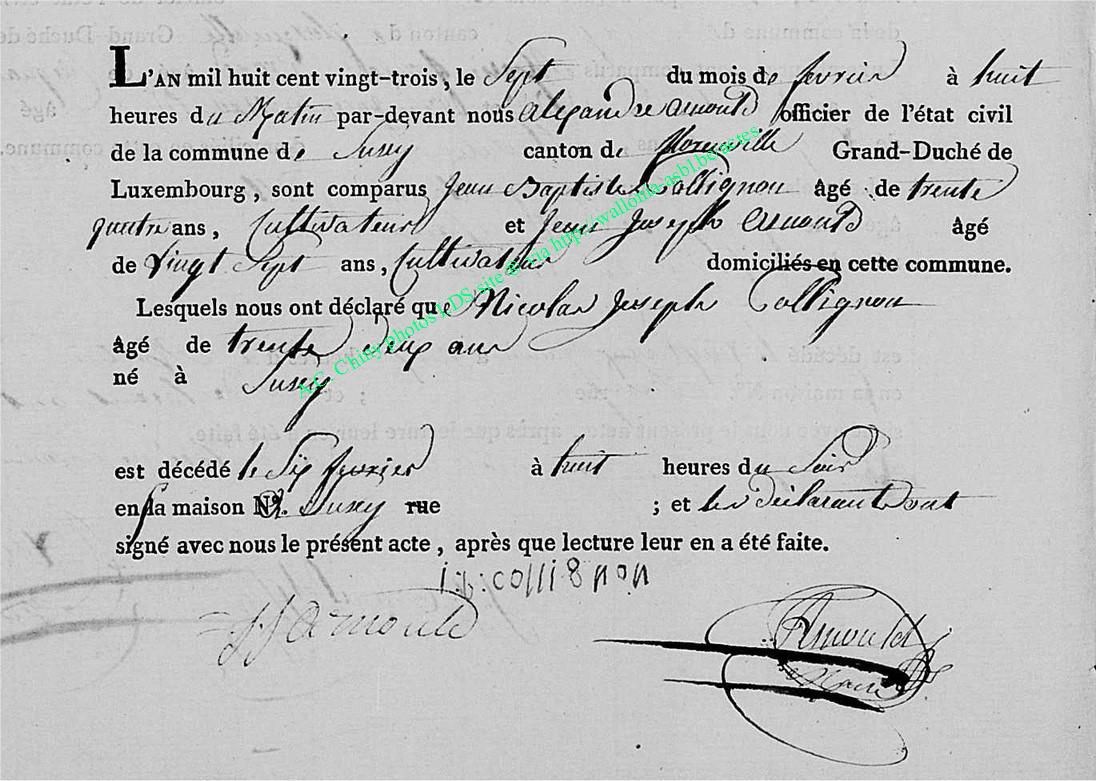 L'AN mil huit cent vingt-trois, le Sept du mois de fevrier à huit
heures du Matin par-devant nous alexandre arnould officier de l'état civil
de la commune de Suxy canton de florenville Grand-Duché de
Luxembourg, sont comparus Jean Baptiste Collignon âgé de trente
quatre ans, Cultivateur et Jean Joseph arnould âgé
de Vingt Sept ans, Cultivateur domiciliés en cette commune.
Lesquels nous ont déclaré que Nicolas Joseph Collignon
âgé de trente deux ans
né à Suxy
est décédé le Six fevrier à huit heures du Soir
en sa maison N°. Suxy rue ; et les déclarant ont
signé avec nous le présent acte, après que lecture leur en a été faite.
collignon
JJ arnould
Arnould
A.C. Chiny Photos LDS site @ma http://wallonia-asbl.be/actes